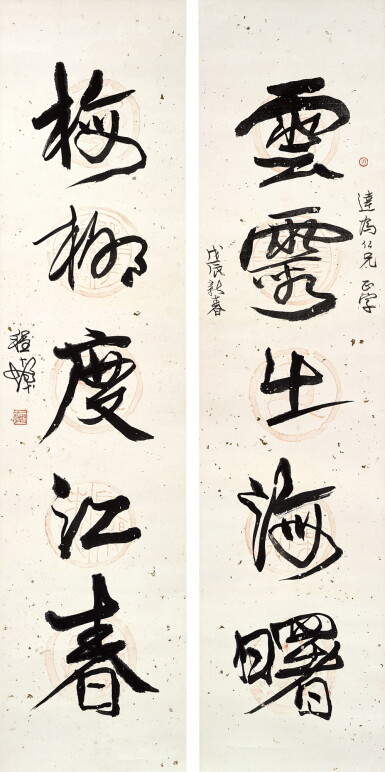 達為仁兄 正字
雲霞出海曙
戊辰新春
梅柳度江春